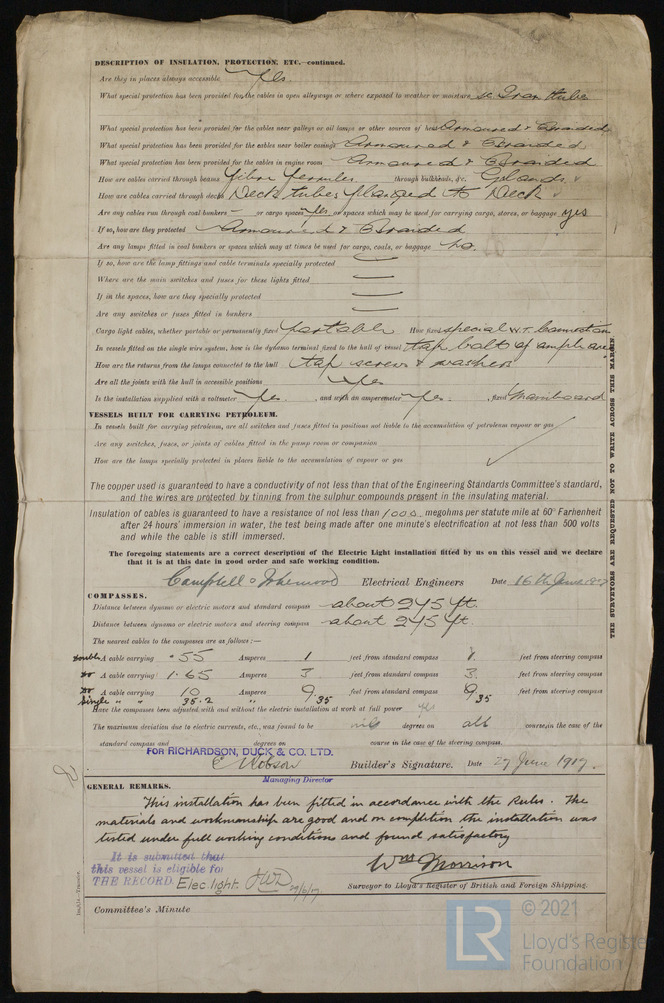 DESCRIPTION OF INSULATION, PROTECTION, ETC.—continued.
Are they in places always accessible Yes.
What special protection has been provided for the cables in open alleyways or where exposed to weather or moisture in Iron tube
What special protection has been provided for the cables near galleys or oil lamps or other sources of heat Armoured & Braided
What special protection has been provided for the cables near boiler casings Armoured & Braided
What special protection has been provided for the cables in engine room Armoured & Braided
How are cables carried through beams fibre ferrules through bulkheads, &c. Glands
How are cables carried through decks Deck tubes flanged to Deck
Are any cables run through coal bunkers – or cargo spaces Yes or spaces which may be used for carrying cargo, stores, or baggage yes
If so, how are they protected Armoured & Braided
Are any lamps fitted in coal bunkers or spaces which may at times be used for cargo, coals, or baggage no.
If so, how are the lamp fittings and cable terminals specially protected —
Where are the main switches and fuses for these lights fitted —
If in the spaces, how are they specially protected —
Are any switches or fuses fitted in bunkers —
Cargo light cables, whether portable or permanently fixed portable How fixed special W.T. Connection
In vessels fitted on the single wire system, how is the dynamo terminal fixed to the hull of vessel tap bolts of ample area
How are the returns from the lamps connected to the hull tap screws & washers
Are all the joints with the hull in accessible positions Yes
Is the installation supplied with a voltmeter Yes. , and with an amperemeter Yes. , fixed Mainboard
VESSELS BUILT FOR CARRYING PETROLEUM.
In vessels built for carrying petroleum, are all switches and fuses fitted in positions not liable to the accumulation of petroleum vapour or gas
Are any switches, fuses, or joints of cables fitted in the pump room or companion
How are the lamps specially protected in places liable to the accumulation of vapour or gas
The copper used is guaranteed to have a conductivity of not less than that of the Engineering Standards Committee's standard,
and the wires are protected by tinning from the sulphur compounds present in the insulating material.
Insulation of cables is guaranteed to have a resistance of not less than 1000 megohms per statute mile at 60° Farhenheit
after 24 hours' immersion in water, the test being made after one minute's electrification at not less than 500 volts
and while the cable is still immersed.
The foregoing statements are a correct description of the Electric Light installation fitted by us on this vessel and we declare
that it is at this date in good order and safe working condition.
Campbell & Isherwood Electrical Engineers Date 16th June 1917
COMPASSES.
Distance between dynamo or electric motors and standard compass about 245 ft.
Distance between dynamo or electric motors and steering compass about 245 ft.
The nearest cables to the compasses are as follows:—
double A cable carrying .55 Amperes 1 feet from standard compass 1 feet from steering compass
Do A cable carrying 1.65 Amperes 3 feet from standard compass 3 feet from steering compass
Do A cable carrying 10 Amperes 9 feet from standard compass 9 feet from steering compass
Single " " 35.2 " 35 35
Have the compasses been adjusted with and without the electric installation at work at full power yes
The maximum deviation due to electric currents, etc., was found to be nil degrees on all course, in the case of the
standard compass and degrees on course in the case of the steering compass.
FOR RICHARDSON, DUCK & CO. LTD.
Robson Builder's Signature. Date 27 June 1917.
Managing Director
GENERAL REMARKS.
This installation has been fitted in accordance with the Rules. The
materials and workmanship are good and on completion the installation was
tested under full working conditions and found satisfactory
It is submitted that
this vessel is eligible for
THE RECORD. Elec. light. 29/6/17
Wm Morrison
Surveyor to Lloyd's Register of British and Foreign Shipping.
Committee's Minute
THE SURVEYORS ARE REQUESTED NOT TO WRITE ACROSS THIS MARGIN.
LR
© 2021
Lloyd's Register
Foundation